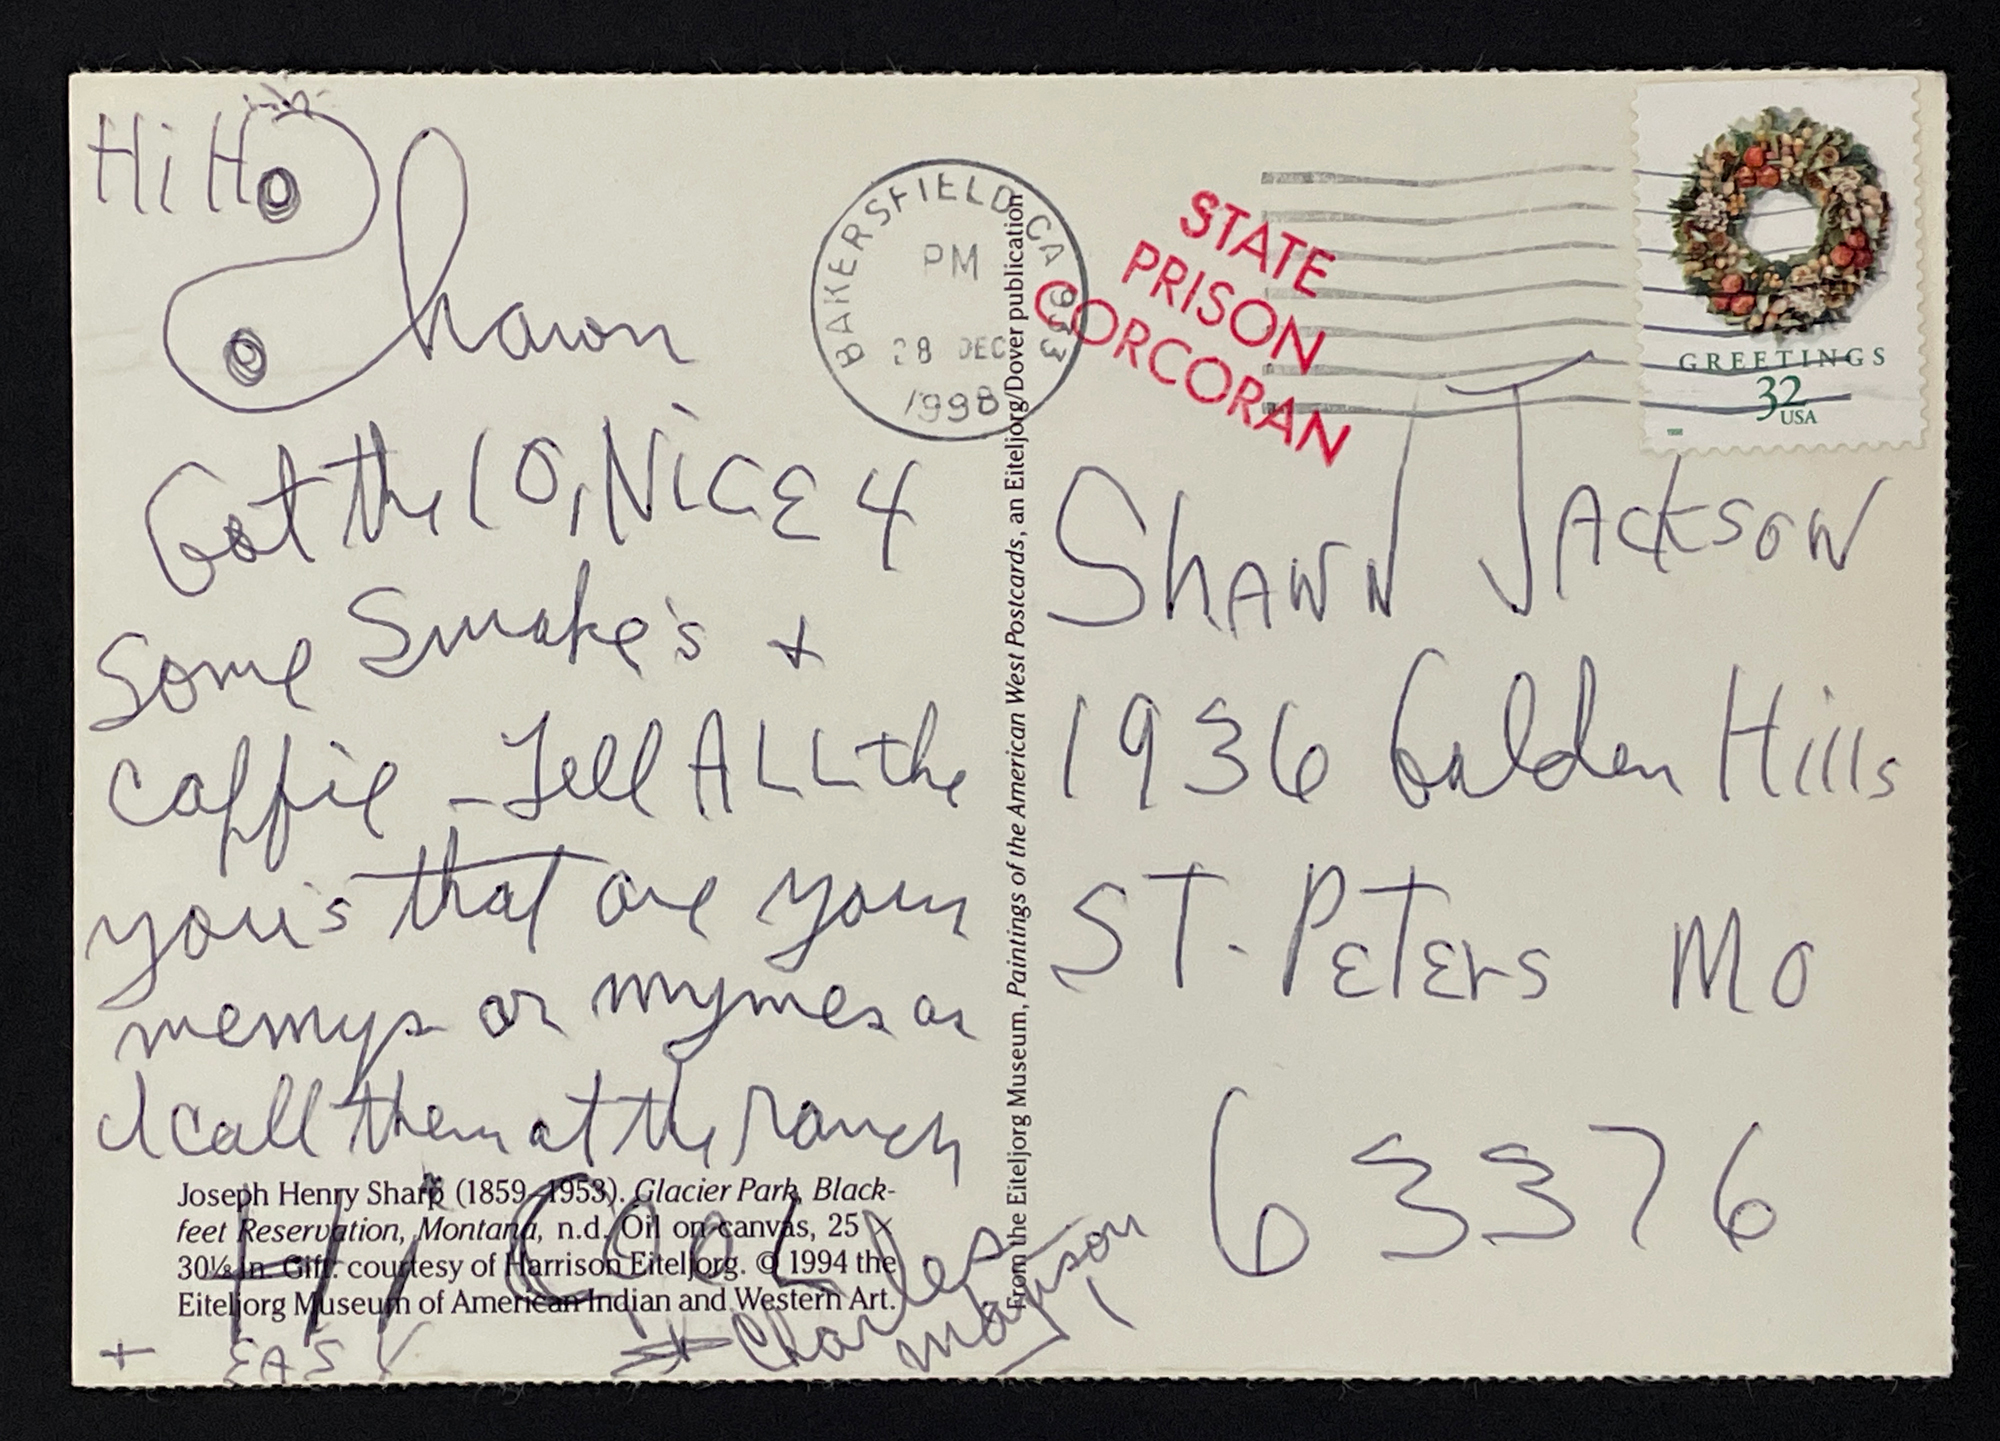 Hi Ho
Shawn
Got the 10, NiCE 4
Some Smoke's +
caffie – Tell ALL the
you's that are your
memys or mymes as
I call them at the ranch
Hi CooL
+ EASY
Charles
manson
Joseph Henry Sharp (1859–1953). Glacier Park, Black-
feet Reservation, Montana, n.d. Oil on canvas, 25 ×
30⅛ in. Gift: courtesy of Harrison Eiteljorg. © 1994 the
Eiteljorg Museum of American Indian and Western Art.
From the Eiteljorg Museum, Paintings of the American West Postcards, an Eiteljorg/Dover publication
BAKERSFIELD CA 933
PM
28 DEC
1998
STATE
PRISON
CORCORAN
GREETINGS
32
USA
1998
ShAWN JAckson
1936 Golden Hills
ST. PETErs MO
63376